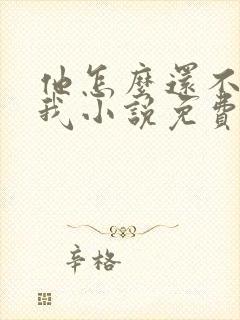 他怎麼還不
我小說免費
辛格